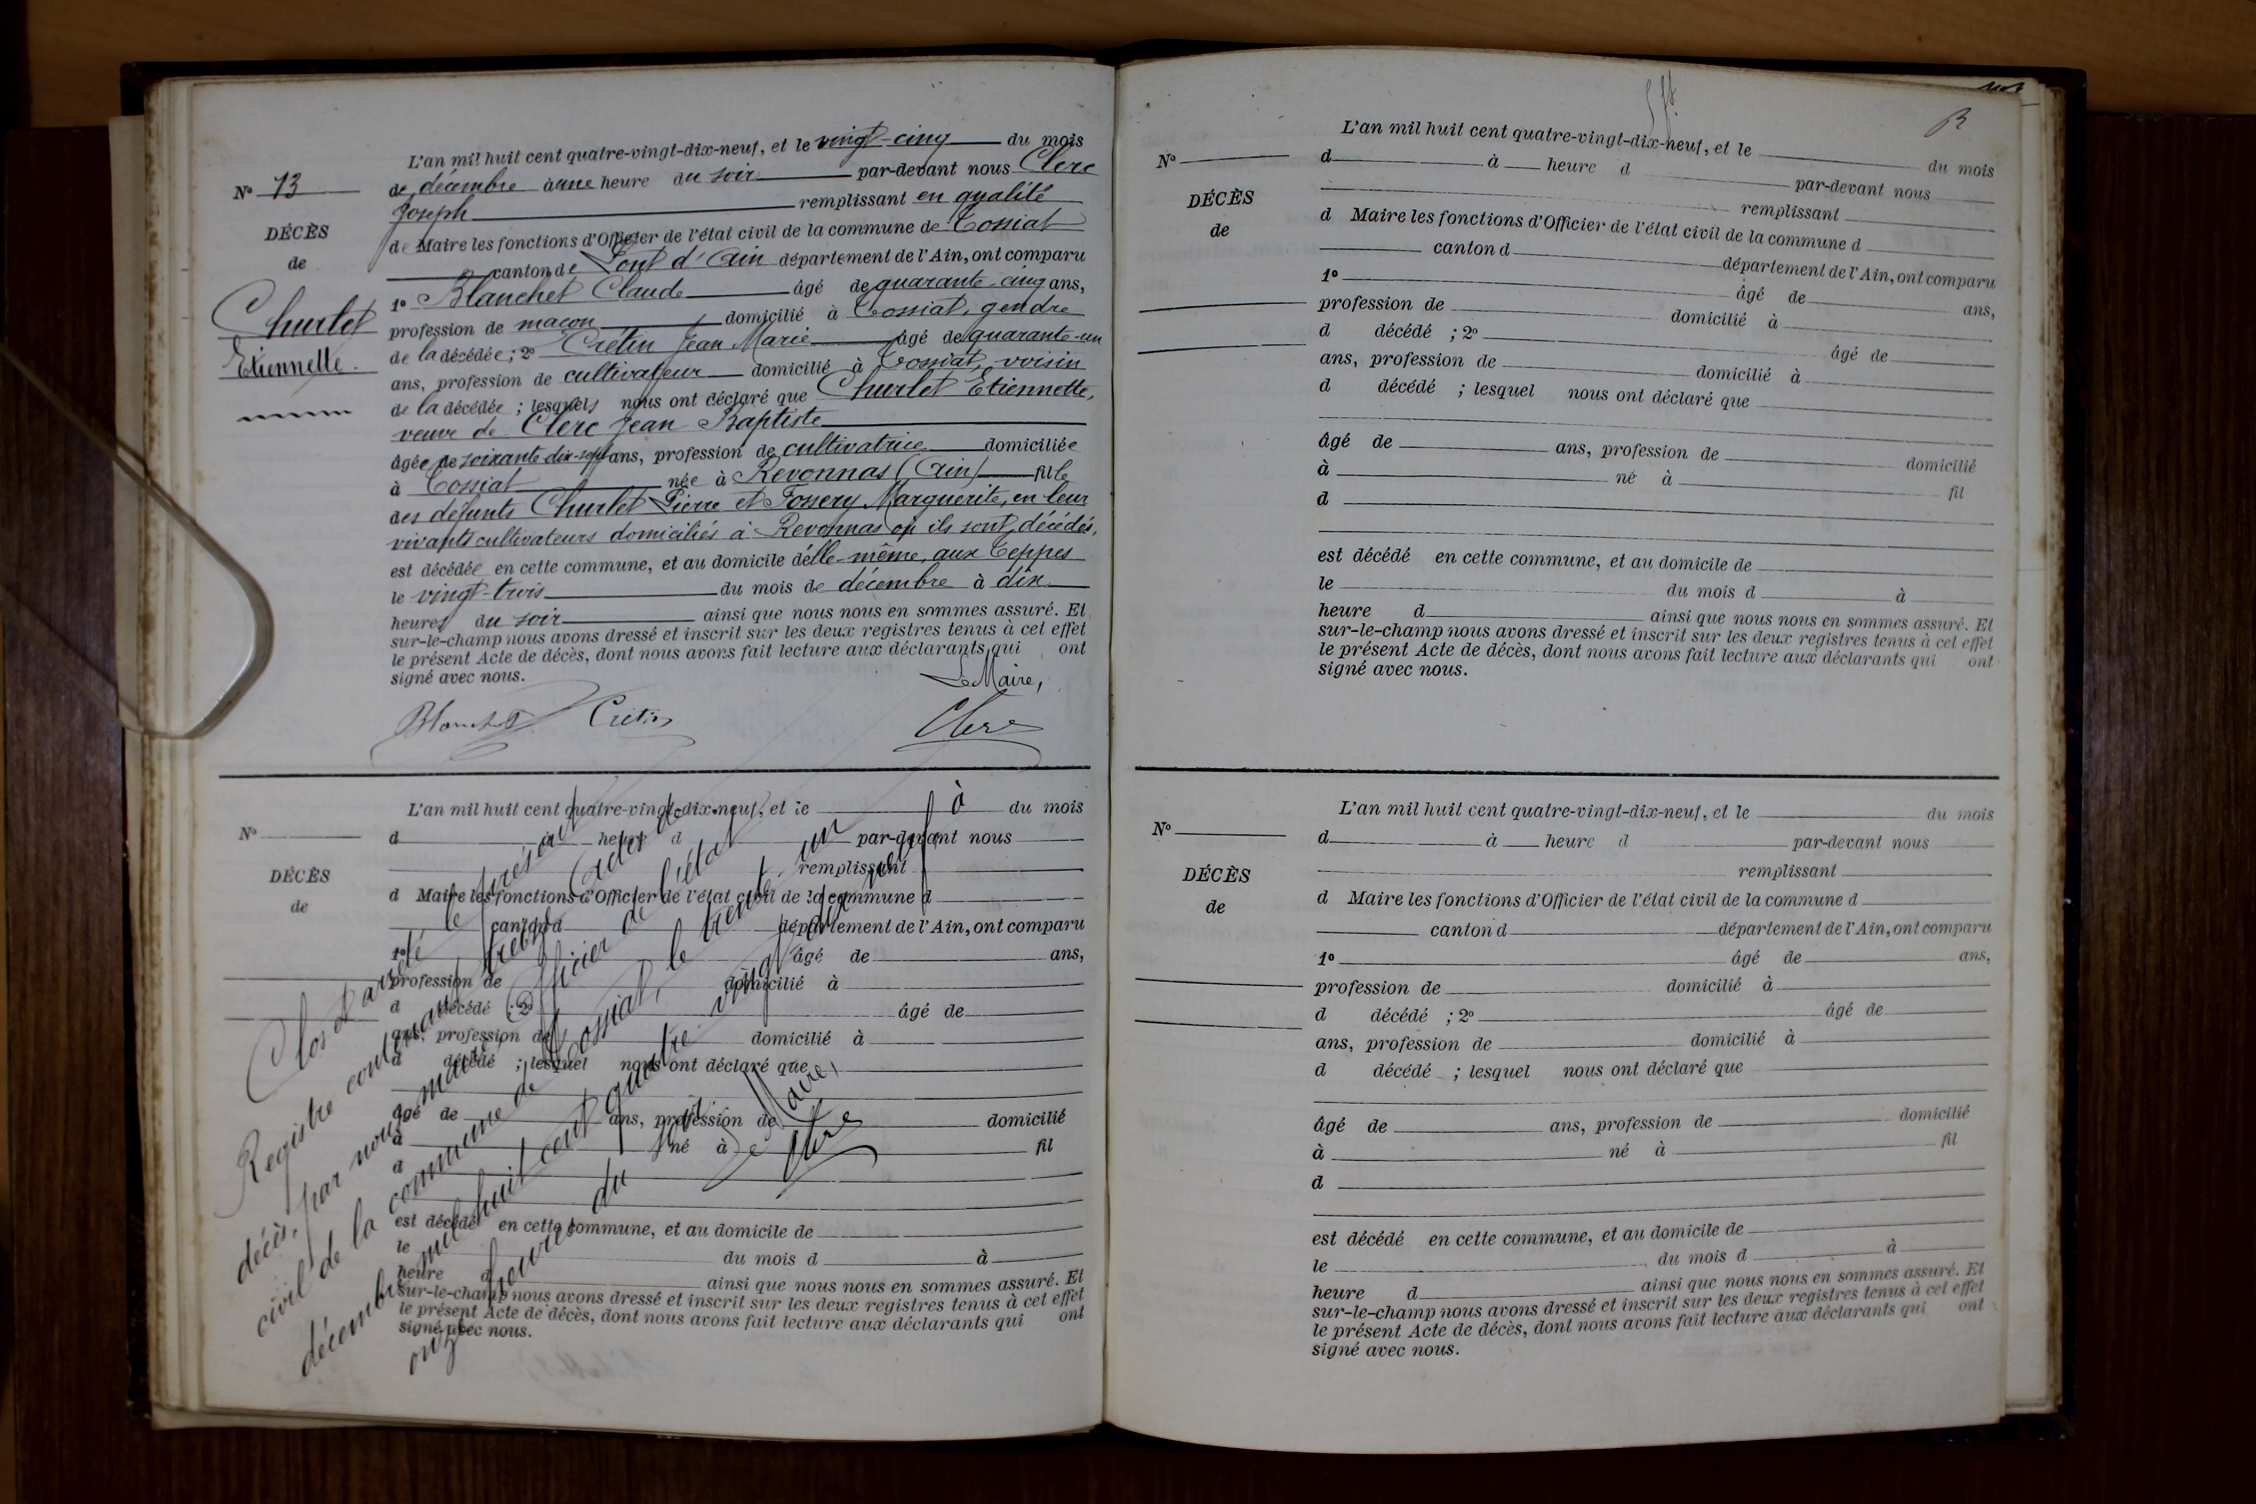 L'an mil huit cent quatre-vingt-dix-neuf, et le vingt-cinq du mois
N° 13
de décembre à une heure du soir par-devant nous Clerc
Joseph remplissant en qualité
DÉCÈS
de Maire les fonctions d'Officier de l'état civil de la commune de Tossiat
de
canton de Pont d'Ain département de l'Ain, ont comparu
1° Blanchet Claude âgé de quarante-cinq ans,
Churlet
profession de maçon domicilié à Tossiat, gendre
Etiennette.
de la décédée ; 2° Cretin Jean Marie âgé de quarante-un
ans, profession de cultivateur domicilié à Tossiat, voisin
de la décédée ; lesquels nous ont déclaré que Churlet Etiennette,
veuve de Clerc Jean Baptiste
âgée de soixante dix-sept ans, profession de cultivatrice domiciliée
à Tossiat née à Revonnas (Ain) fille
des défunts Churlet Pierre et Fossery Marguerite, en leur
vivants cultivateurs domiciliés à Revonnas où ils sont décédés,
est décédée en cette commune, et au domicile d'elle-même, aux Teppes
le vingt-trois du mois de décembre à dix
heures du soir ainsi que nous nous en sommes assuré. Et
sur-le-champ nous avons dressé et inscrit sur les deux registres tenus à cet effet
le présent Acte de décès, dont nous avons fait lecture aux déclarants qui ont
signé avec nous.
Le Maire,
Blanchet Cretin Clerc
L'an mil huit cent quatre-vingt-dix-neuf, et le du mois
N°
d à heure d par-devant nous
remplissant
DÉCÈS
d Maire les fonctions d'Officier de l'état civil de la commune d
de
canton d département de l'Ain, ont comparu
1° âgé de ans,
profession de domicilié à
d décédé ; 2° âgé de
ans, profession de domicilié à
d décédé ; lesquel nous ont déclaré que
âgé de ans, profession de domicilié
à né à fil
d
est décédé en cette commune, et au domicile de
le du mois d à
heure d ainsi que nous nous en sommes assuré. Et
sur-le-champ nous avons dressé et inscrit sur les deux registres tenus à cet effet
le présent Acte de décès, dont nous avons fait lecture aux déclarants qui ont
signé avec nous.
Clos et arrêté le présent
Registre contenant treize Actes de
décès, par nous maire, Officier de l'état
civil de la commune de Tossiat, le trente un
décembre mil huit cent quatre vingt dix neuf à
onze heures du soir.
Le Maire,
Clerc
L'an mil huit cent quatre-vingt-dix-neuf, et le du mois
N°
d à heure d par-devant nous
remplissant
DÉCÈS
d Maire les fonctions d'Officier de l'état civil de la commune d
de
canton d département de l'Ain, ont comparu
1° âgé de ans,
profession de domicilié à
d décédé ; 2° âgé de
ans, profession de domicilié à
d décédé ; lesquel nous ont déclaré que
âgé de ans, profession de domicilié
à né à fil
d
est décédé en cette commune, et au domicile de
le du mois d à
heure d ainsi que nous nous en sommes assuré. Et
sur-le-champ nous avons dressé et inscrit sur les deux registres tenus à cet effet
le présent Acte de décès, dont nous avons fait lecture aux déclarants qui ont
signé avec nous.
L'an mil huit cent quatre-vingt-dix-neuf, et le du mois
N°
d à heure d par-devant nous
remplissant
DÉCÈS
d Maire les fonctions d'Officier de l'état civil de la commune d
de
canton d département de l'Ain, ont comparu
1° âgé de ans,
profession de domicilié à
d décédé ; 2° âgé de
ans, profession de domicilié à
d décédé ; lesquel nous ont déclaré que
âgé de ans, profession de domicilié
à né à fil
d
est décédé en cette commune, et au domicile de
le du mois d à
heure d ainsi que nous nous en sommes assuré. Et
sur-le-champ nous avons dressé et inscrit sur les deux registres tenus à cet effet
le présent Acte de décès, dont nous avons fait lecture aux déclarants qui ont
signé avec nous.